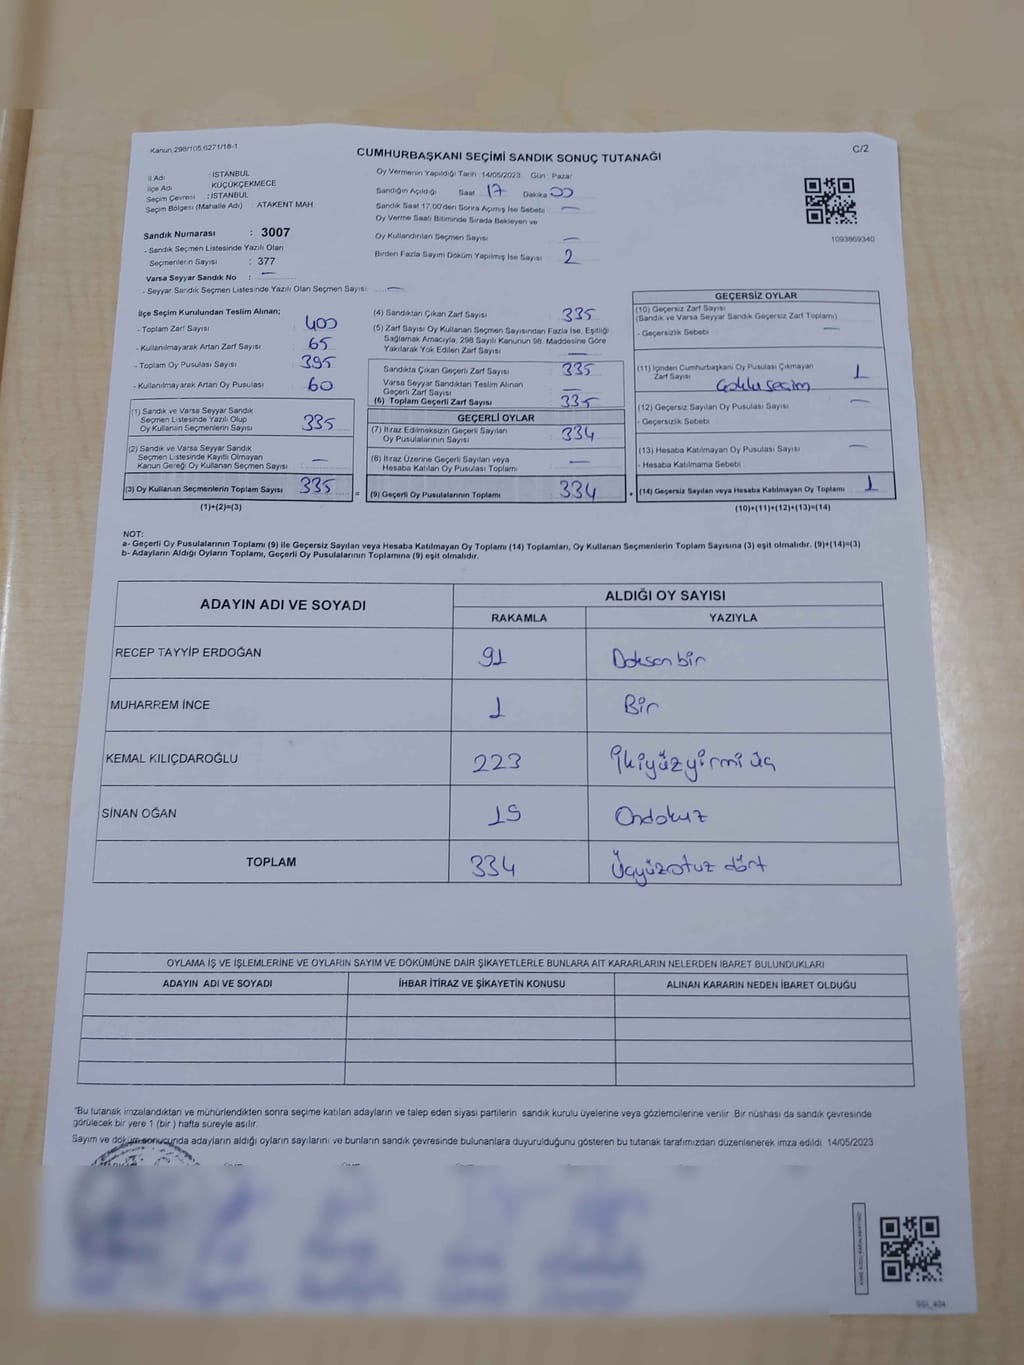 Kanun:298/105,6271/18-1
C/2
CUMHURBAŞKANI SEÇİMİ SANDIK SONUÇ TUTANAĞI
İl Adı : İSTANBUL
İlçe Adı : KÜÇÜKÇEKMECE
Seçim Çevresi : İSTANBUL
Seçim Bölgesi (Mahalle Adı) ATAKENT MAH.
Sandık Numarası : 3007
- Sandık Seçmen Listesinde Yazılı Olan
Seçmenlerin Sayısı : 377
Varsa Seyyar Sandık No : —
- Seyyar Sandık Seçmen Listesinde Yazılı Olan Seçmen Sayısı: —
Oy Vermenin Yapıldığı Tarih :14/05/2023 Gün : Pazar
Sandığın Açıldığı Saat 17 Dakika 00
Sandık Saat 17.00'den Sonra Açılmış İse Sebebi : —
Oy Verme Saati Bitiminde Sırada Bekleyen ve
Oy Kullandırılan Seçmen Sayısı —
Birden Fazla Sayım Döküm Yapılmış İse Sayısı : 2
1093869340
İlçe Seçim Kurulundan Teslim Alınan;
- Toplam Zarf Sayısı : 400
- Kullanılmayarak Artan Zarf Sayısı : 65
- Toplam Oy Pusulası Sayısı : 395
- Kullanılmayarak Artan Oy Pusulası : 60
(1) Sandık ve Varsa Seyyar Sandık
Seçmen Listesinde Yazılı Olup
Oy Kullanan Seçmenlerin Sayısı : 335
(2) Sandık ve Varsa Seyyar Sandık
Seçmen Listesinde Kayıtlı Olmayan
Kanun Gereği Oy Kullanan Seçmen Sayısı : —
(3) Oy Kullanan Seçmenlerin Toplam Sayısı : 335
(1)+(2)=(3)
(4) Sandıktan Çıkan Zarf Sayısı : 335
(5) Zarf Sayısı Oy Kullanan Seçmen Sayısından Fazla İse, Eşitliği
Sağlamak Amacıyla, 298 Sayılı Kanunun 98. Maddesine Göre
Yakılarak Yok Edilen Zarf Sayısı : —
Sandıkta Çıkan Geçerli Zarf Sayısı : 335
Varsa Seyyar Sandıktan Teslim Alınan
Geçerli Zarf Sayısı : —
(6) Toplam Geçerli Zarf Sayısı : 335
GEÇERLİ OYLAR
(7) İtiraz Edilmeksizin Geçerli Sayılan
Oy Pusulalarının Sayısı : 334
(8) İtiraz Üzerine Geçerli Sayılan veya
Hesaba Katılan Oy Pusulası Toplamı : —
= (9) Geçerli Oy Pusulalarının Toplamı : 334
GEÇERSİZ OYLAR
(10) Geçersiz Zarf Sayısı
(Sandık ve Varsa Seyyar Sandık Geçersiz Zarf Toplamı)
- Geçersizlik Sebebi : —
(11) İçinden Cumhurbaşkanı Oy Pusulası Çıkmayan
Zarf Sayısı : 1
(12) Geçersiz Sayılan Oy Pusulası Sayısı : —
- Geçersizlik Sebebi :
(13) Hesaba Katılmayan Oy Pusulası Sayısı : —
- Hesaba Katılmama Sebebi :
+ (14) Geçersiz Sayılan veya Hesaba Katılmayan Oy Toplamı : 1
(10)+(11)+(12)+(13)=(14)
NOT:
a- Geçerli Oy Pusulalarının Toplamı (9) ile Geçersiz Sayılan veya Hesaba Katılmayan Oy Toplamı (14) Toplamları, Oy Kullanan Seçmenlerin Toplam Sayısına (3) eşit olmalıdır. (9)+(14)=(3)
b- Adayların Aldığı Oyların Toplamı, Geçerli Oy Pusulalarının Toplamına (9) eşit olmalıdır.
ADAYIN ADI VE SOYADI ALDIĞI OY SAYISI
RAKAMLA YAZIYLA
RECEP TAYYİP ERDOĞAN 91 Doksan bir
MUHARREM İNCE 1 Bir
KEMAL KILIÇDAROĞLU 223 İkiyüzyirmi üç
SİNAN OĞAN 19 Ondokuz
TOPLAM 334 Üçyüzotuz dört
OYLAMA İŞ VE İŞLEMLERİNE VE OYLARIN SAYIM VE DÖKÜMÜNE DAİR ŞİKAYETLERLE BUNLARA AİT KARARLARIN NELERDEN İBARET BULUNDUKLARI
ADAYIN ADI VE SOYADI İHBAR İTİRAZ VE ŞİKAYETİN KONUSU ALINAN KARARIN NEDEN İBARET OLDUĞU
*Bu tutanak imzalandıktan ve mühürlendikten sonra seçime katılan adayların ve talep eden siyasi partilerin sandık kurulu üyelerine veya gözlemcilerine verilir. Bir nüshası da sandık çevresinde
görülecek bir yere 1 (bir ) hafta süreyle asılır.
Sayım ve döküm sonucunda adayların aldığı oyların sayılarını ve bunların sandık çevresinde bulunanlara duyurulduğunu gösteren bu tutanak tarafımızdan düzenlenerek imza edildi. 14/05/2023